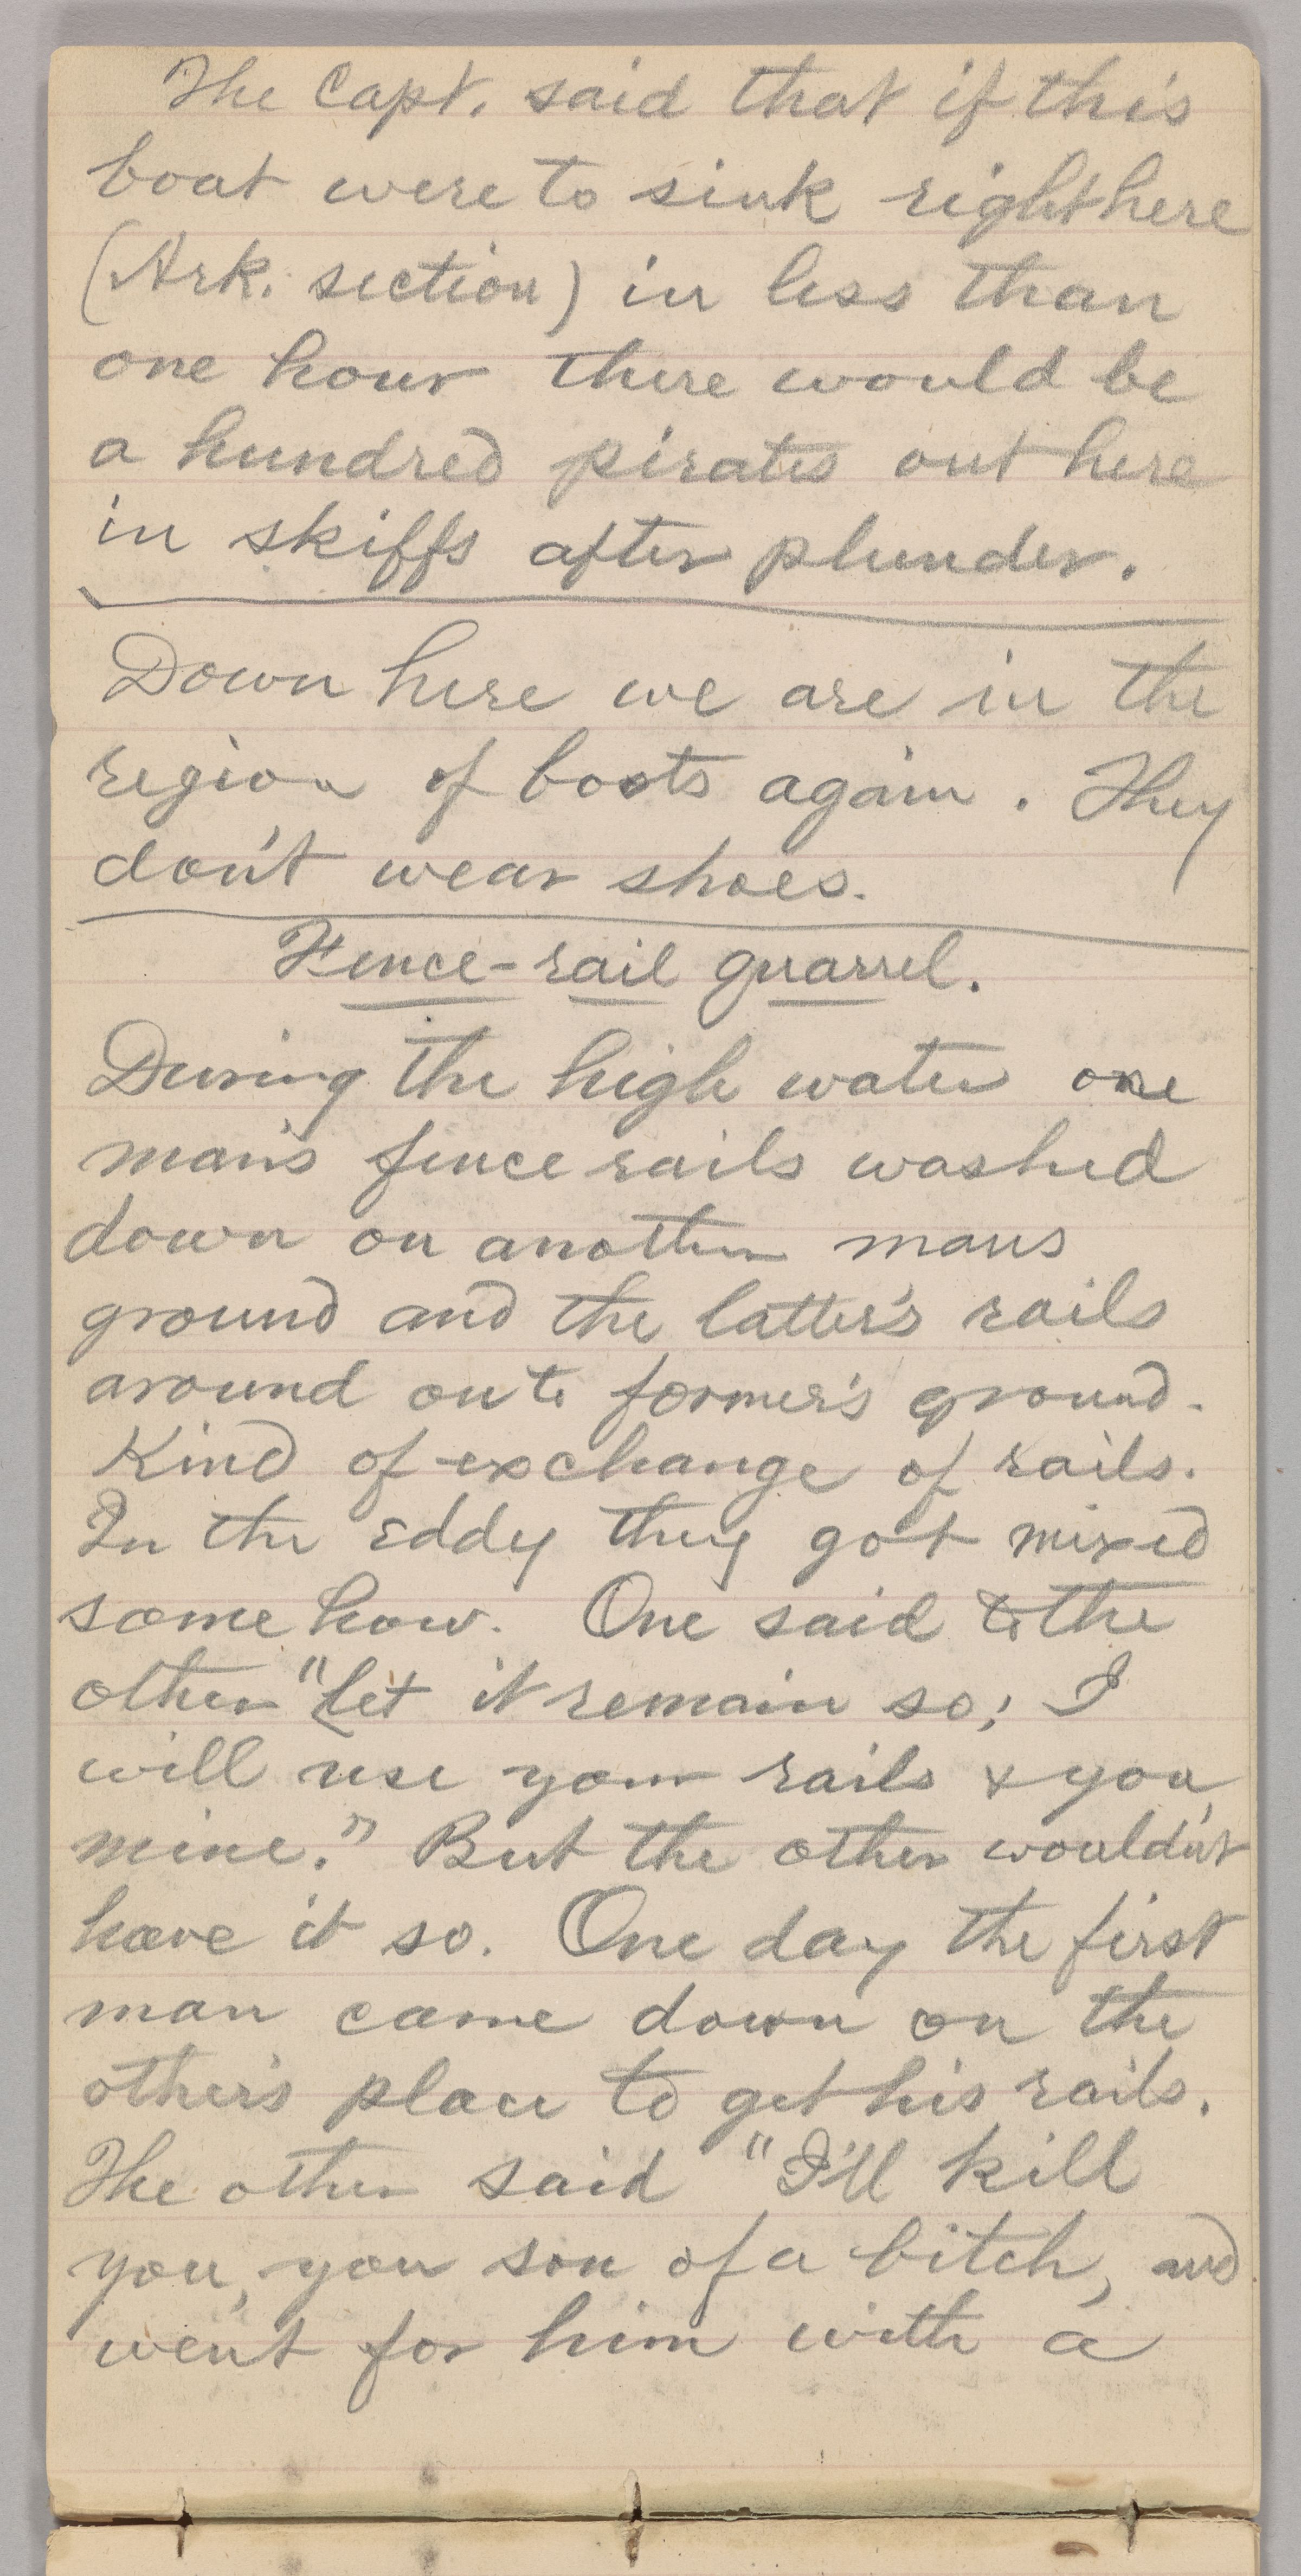 The Capt. said that if this
boat were to sink right here
(Ark. section) in less than
one hour there would be
a hundred pirates out here
in skiffs after plunder.
Down here we are in the
region of boots again. They
don't wear shoes.
Fence-rail quarrel.
During the high water one
man's fence rails washed
down on another mans
ground and the latter's rails
around on to former's ground.
Kind of exchange of rails.
In the eddy they got mixed
some how. One said to the
other "Let it remain so; I
will use your rails & you
mine." But the other wouldn't
have it so. One day the first
man came down on the
other's place to get his rails.
The other said "I'll kill
you, you son of a bitch, and
went for him with a